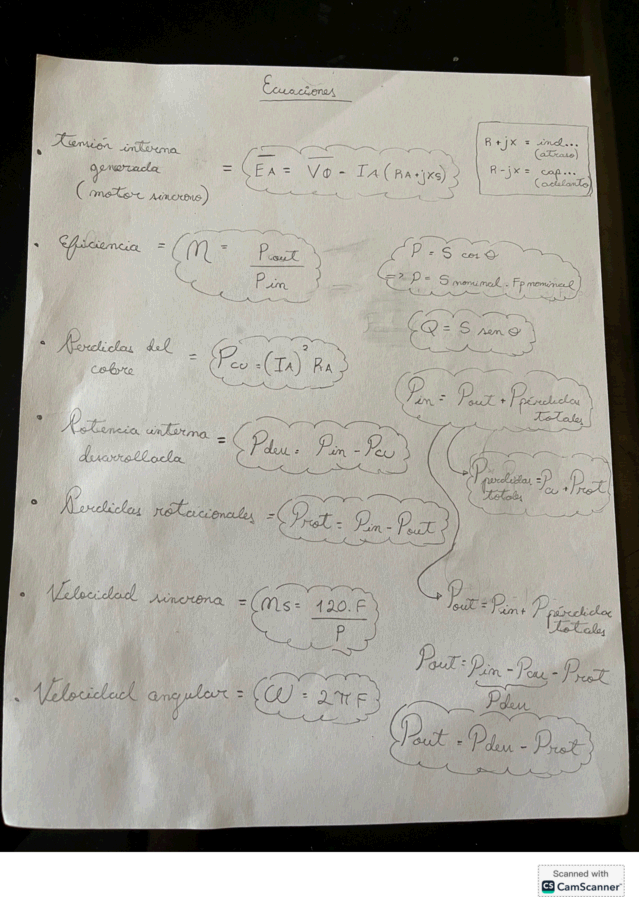 Ecuaciones
• Tensión interna
generada
(motor síncrono)
= EA = VΦ - IA (RA + jXs)
R + jx = ind...
(atraso)
R - jx = cap...
(adelanto)
• Eficiencia = η = Pout / Pin
P = S cos θ
=> P = S nominal . Fp nominal
Q = S sen θ
• Perdidas del
cobre
= Pcu = (IA)² RA
Pin = Pout + Ppérdidas
totales
• Potencia interna
desarrollada
= Pdev = Pin - Pcu
Pperdidas = Pcu + Prot
totales
• Perdidas rotacionales = Prot = Pin - Pout
• Velocidad síncrona = ns = 120.F / P
Pout = Pin + Ppérdidas
totales
Pout = Pin - Pcu - Prot
Pdev
• Velocidad angular = ω = 2πF
Pout = Pdev - Prot
Scanned with
CS CamScanner